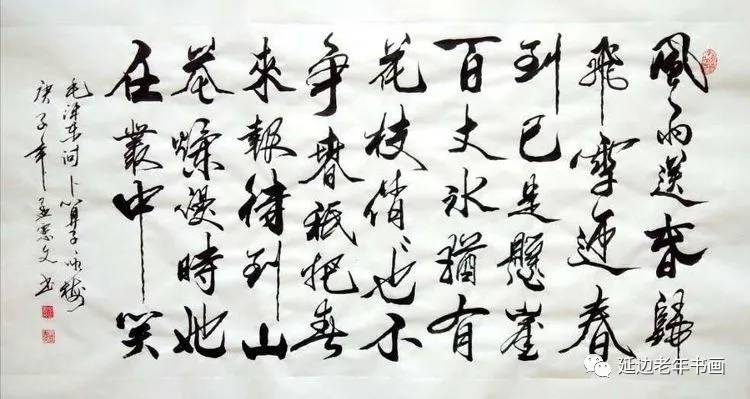 風雨送春歸
飛雪迎春
到已是懸崖
百丈冰猶有
花枝俏〻也不
争春祇把春
來報待到山
花爛漫時她
在叢中笑
毛泽东词卜算子咏梅
庚子年孟宪文书
延边老年书画